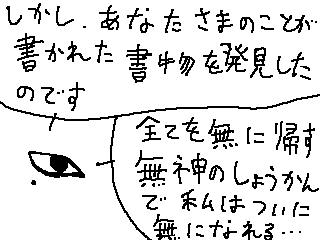 しかし、あなたさまのことが
書かれた書物を発見した
のです
全てを無に帰す
無神のしょうかん
で私はついに
無になれる…